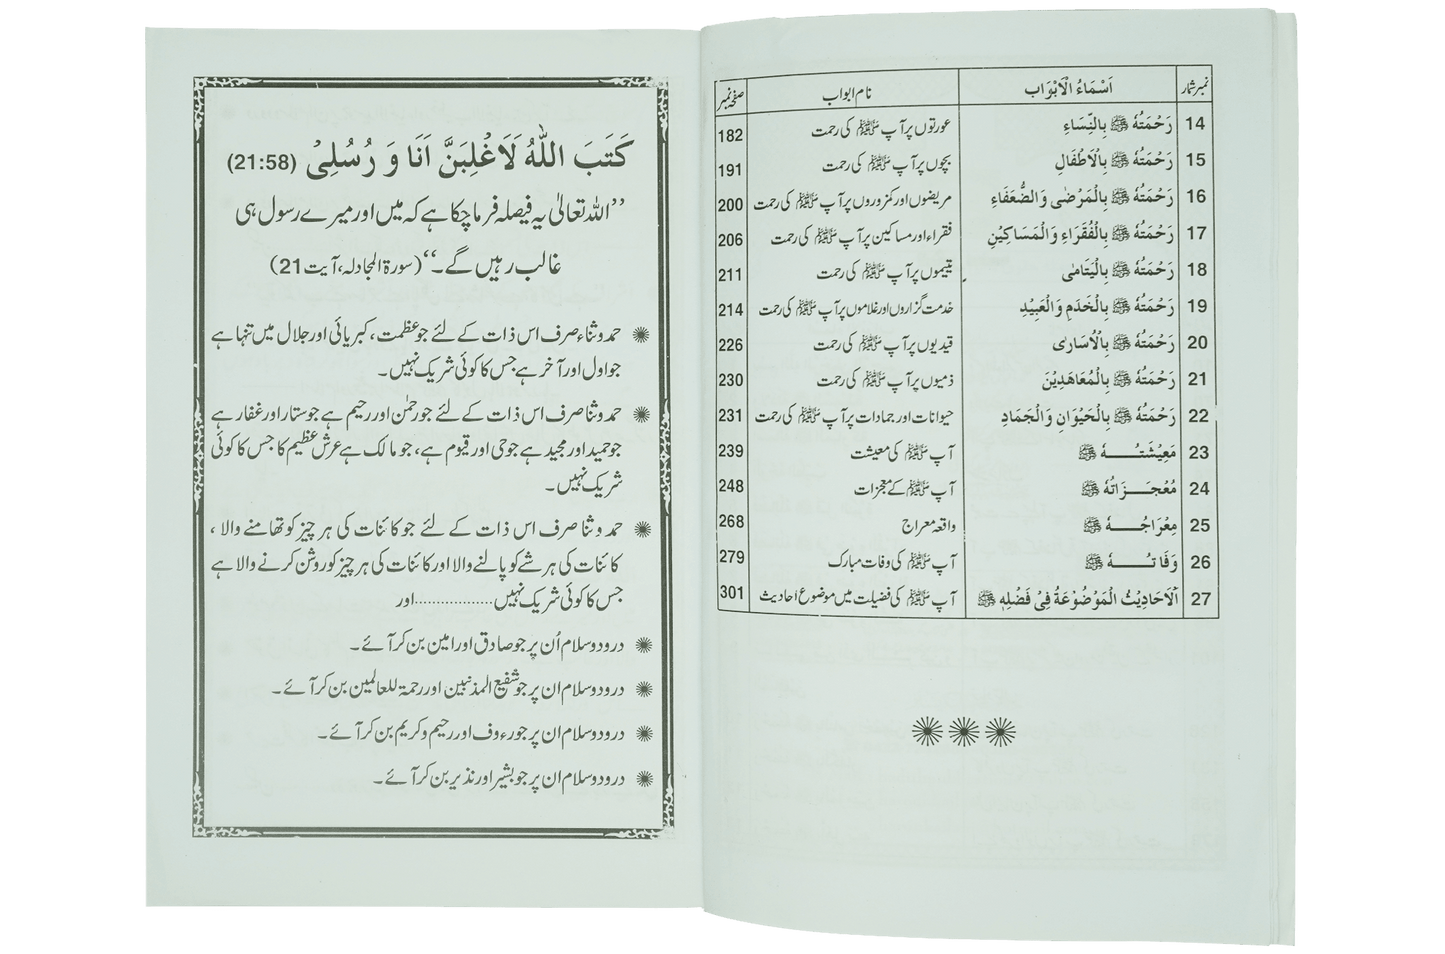 نمبر شمار اَسْمَاءُ الْاَبْوَابِ نام ابواب صفحہ نمبر
14 رَحْمَتُہٗ ﷺ بِالنِّسَاءِ عورتوں پر آپ ﷺ کی رحمت 182
15 رَحْمَتُہٗ ﷺ بِالْاَطْفَالِ بچوں پر آپ ﷺ کی رحمت 191
16 رَحْمَتُہٗ ﷺ بِالْمَرْضٰی وَالضُّعَفَاءِ مریضوں اور کمزوروں پر آپ ﷺ کی رحمت 200
17 رَحْمَتُہٗ ﷺ بِالْفُقَرَاءِ وَالْمَسَاکِیْنِ فقراء اور مساکین پر آپ ﷺ کی رحمت 206
18 رَحْمَتُہٗ ﷺ بِالْیَتَامٰی یتیموں پر آپ ﷺ کی رحمت 211
19 رَحْمَتُہٗ ﷺ بِالْخَدَمِ وَالْعَبِیْدِ خدمت گزاروں اور غلاموں پر آپ ﷺ کی رحمت 214
20 رَحْمَتُہٗ ﷺ بِالْاُسَارٰی قیدیوں پر آپ ﷺ کی رحمت 226
21 رَحْمَتُہٗ ﷺ بِالْمُعَاھَدِیْنَ ذمیوں پر آپ ﷺ کی رحمت 230
22 رَحْمَتُہٗ ﷺ بِالْحَیْوَانِ وَالْجَمَادِ حیوانات اور جمادات پر آپ ﷺ کی رحمت 231
23 مَعِیْشَتُـہٗ ﷺ آپ ﷺ کی معیشت 239
24 مُعْجِـزَاتُہٗ ﷺ آپ ﷺ کے معجزات 248
25 مِعْرَاجُـہٗ ﷺ واقعہ معراج 268
26 وَفَاتُـہٗ ﷺ آپ ﷺ کی وفات مبارک 279
27 اَلْاَحَادِیْثُ الْمَوْضُوْعَۃُ فِیْ فَضْلِہٖ ﷺ آپ ﷺ کی فضیلت میں موضوع احادیث 301
کَتَبَ اللّٰہُ لَاَغْلِبَنَّ اَنَا وَ رُسُلِیْ (21:58)
’’اللہ تعالیٰ یہ فیصلہ فرما چکا ہے کہ میں اور میرے رسول ہی
غالب رہیں گے۔‘‘ (سورۃ المجادلہ، آیت 21)
حمد و ثناء صرف اس ذات کے لئے جو عظمت، کبریائی اور جلال میں تنہا ہے
جو اول اور آخر ہے جس کا کوئی شریک نہیں۔
حمد و ثنا صرف اس ذات کے لئے جو رحمٰن اور رحیم ہے جو ستار اور غفار ہے
جو حمید اور مجید ہے جو حی اور قیوم ہے، جو مالک ہے عرش عظیم کا جس کا کوئی
شریک نہیں۔
حمد و ثنا صرف اس ذات کے لئے جو کائنات کی ہر چیز کو تھامنے والا،
کائنات کی ہر شے کو پالنے والا اور کائنات کی ہر چیز کو روشن کرنے والا ہے
جس کا کوئی شریک نہیں..................اور
درود و سلام اُن پر جو صادق اور امین بن کر آئے۔
درود و سلام ان پر جو شفیع المذنبین اور رحمۃ للعالمین بن کر آئے۔
درود و سلام ان پر جو رءوف اور رحیم و کریم بن کر آئے۔
درود و سلام ان پر جو بشیر اور نذیر بن کر آئے۔